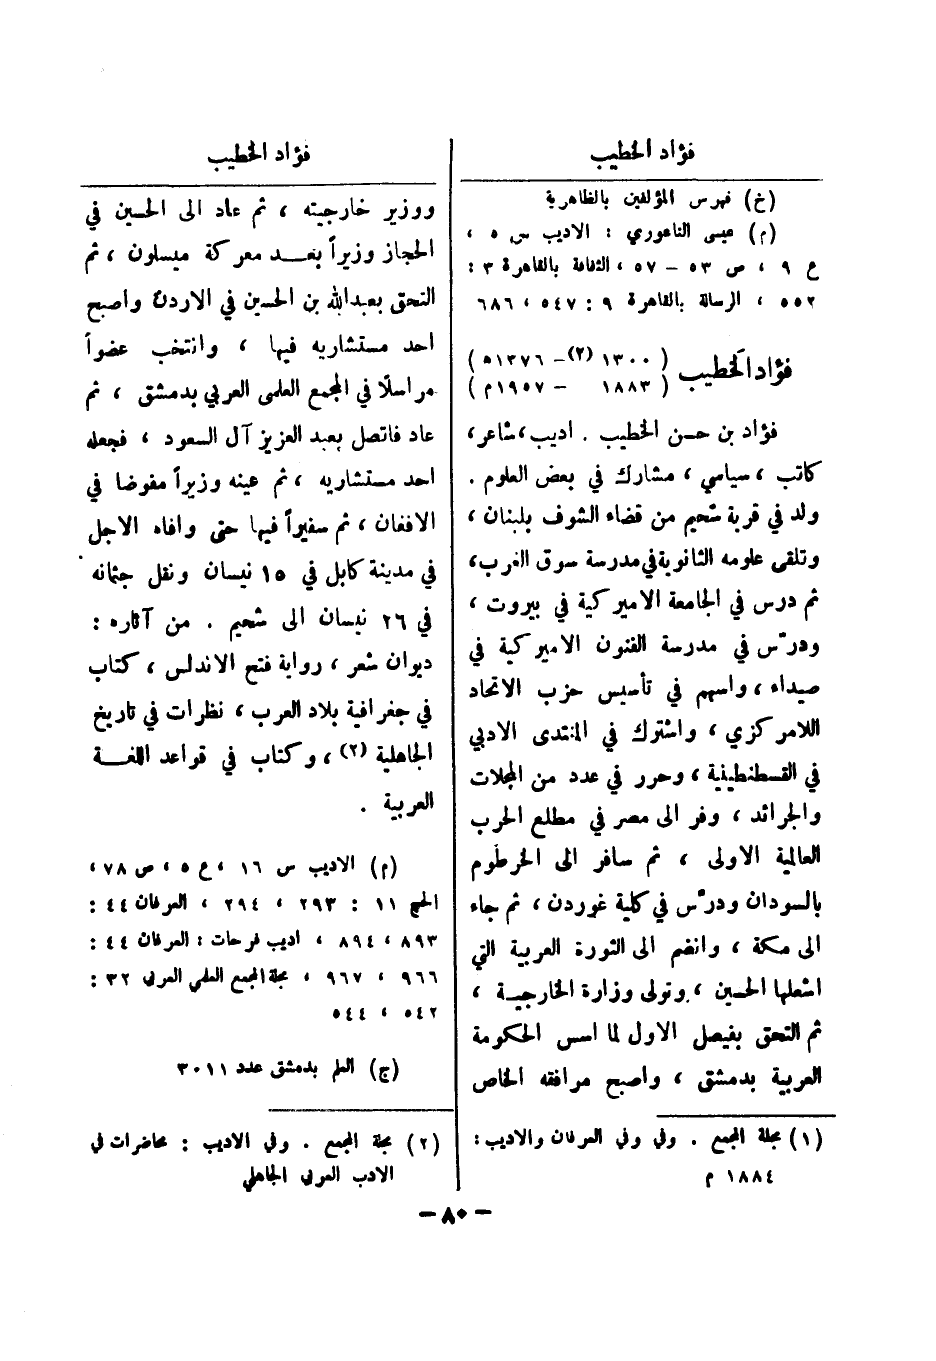 فؤاد الخطيب
(خ) فهرس المؤلفين بالظاهرية
(م) عيسى الناعوري : الاديب س ٥ ،
ع ٩ ، ص ٥٣ – ٥٧ ، الثقافة بالقاهرة ٣ :
٥٥٢ ، الرسالة بالقاهرة ٩ : ٥٤٧ ، ٦٨٦
فؤاد الخطيب ( ١٣٠٠ (٢) – ١٣٧٦ ه )
( ١٨٨٣ – ١٩٥٧ م )
فؤاد بن حسن الخطيب . اديب ، شاعر ،
كاتب ، سياسي ، مشارك في بعض العلوم .
ولد في قرية شحيم من قضاء الشوف بلبنان ،
وتلقى علومه الثانوية في مدرسة سوق الغرب ،
ثم درس في الجامعة الاميركية في بيروت ،
ودرّس في مدرسة الفنون الاميركية في
صيداء ، واسهم في تأسيس حزب الاتحاد
اللامركزي ، واشترك في المنتدى الادبي
في القسطنطينية ، وحرر في عدد من المجلات
والجرائد ، وفر الى مصر في مطلع الحرب
العالمية الاولى ، ثم سافر الى الخرطوم
بالسودان ودرّس في كلية غوردن ، ثم جاء
الى مكة ، وانضم الى الثورة العربية التي
اشعلها الحسين ، وتولى وزارة الخارجية ،
ثم التحق بفيصل الاول لما اسس الحكومة
العربية بدمشق ، واصبح مرافقه الخاص
(١) مجلة المجمع . وفي وفي العرفان والاديب :
١٨٨٤ م
فؤاد الخطيب
ووزير خارجيته ، ثم عاد الى الحسين في
الحجاز وزيراً بعد معركة ميسلون ، ثم
التحق بعبدالله بن الحسين في الاردن واصبح
احد مستشاريه فيها ، وانتخب عضواً
مراسلًا في المجمع العلمي العربي بدمشق ، ثم
عاد فاتصل بعبد العزيز آل السعود ، فجعله
احد مستشاريه ، ثم عينه وزيراً مفوضا في
الافغان ، ثم سفيراً فيها حتى وافاه الاجل
في مدينة كابل في ١٥ نيسان ونقل جثمانه
في ٢٦ نيسان الى شحيم . من آثاره :
ديوان شعر ، رواية فتح الاندلس ، كتاب
في جغرافية بلاد العرب ، نظرات في تاريخ
الجاهلية (٢) ، وكتاب في قواعد اللغة
العربية .
(م) الاديب س ١٦ ، ع ٥ ، ص ٧٨ ،
الحج ١١ : ٢٩٣ ، ٢٩٤ ، العرفان ٤٤ :
٨٩٣ ، ٨٩٤ ، اديب فرحات : العرفان ٤٤ :
٩٦٦ ، ٩٦٧ ، مجلة المجمع العلمي العربي ٣٢ :
٥٤٢ ، ٥٤٤
(ج) العلم بدمشق عدد ٣٠١١
(٢) مجلة المجمع . وفي الاديب : محاضرات في
الادب العربي الجاهلي
– ٨٠ –